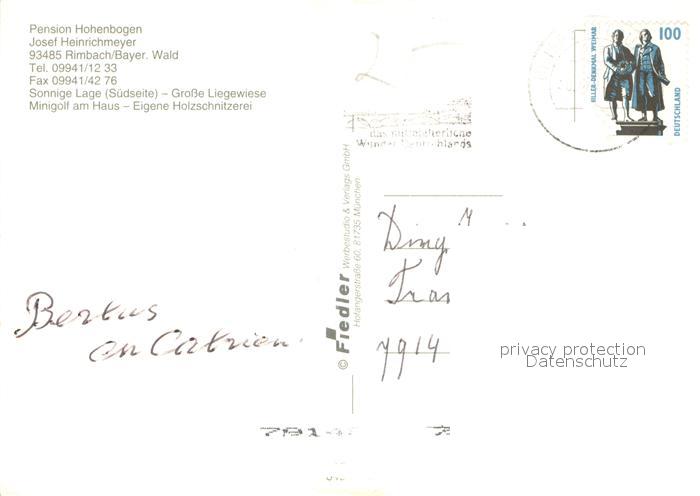 Pension Hohenbogen
Josef Heinrichmeyer
93485 Rimbach/Bayer. Wald
Tel. 09941/12 33
Fax 09941/42 76
Sonnige Lage (Südseite) – Große Liegewiese
Minigolf am Haus – Eigene Holzschnitzerei
das mittelalterliche
Wunder Deutschlands
100
DEUTSCHLAND
© Fiedler Werbestudio & Verlags GmbH
Hofangerstraße 60, 81735 München
Bertus
en Catrien.
7914
privacy protection
Datenschutz